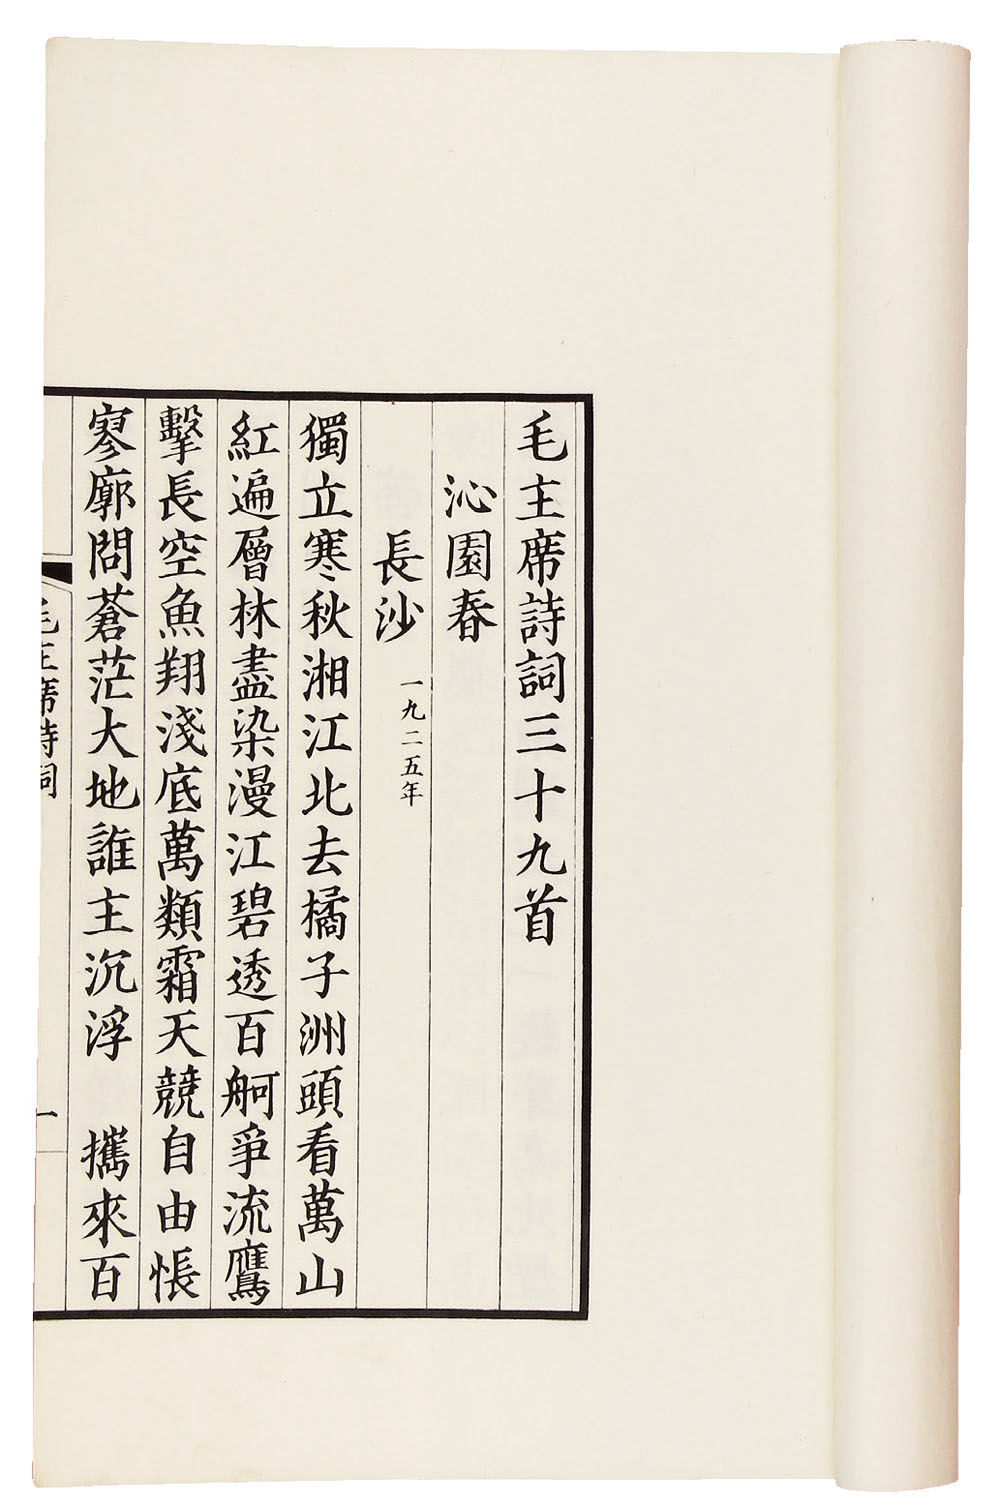 毛主席詩詞三十九首
沁園春
長沙 一九二五年
獨立寒秋湘江北去橘子洲頭看萬山
紅遍層林盡染漫江碧透百舸爭流鷹
擊長空魚翔淺底萬類霜天競自由悵
寥廓問蒼茫大地誰主沉浮 攜來百
毛主席詩詞
一